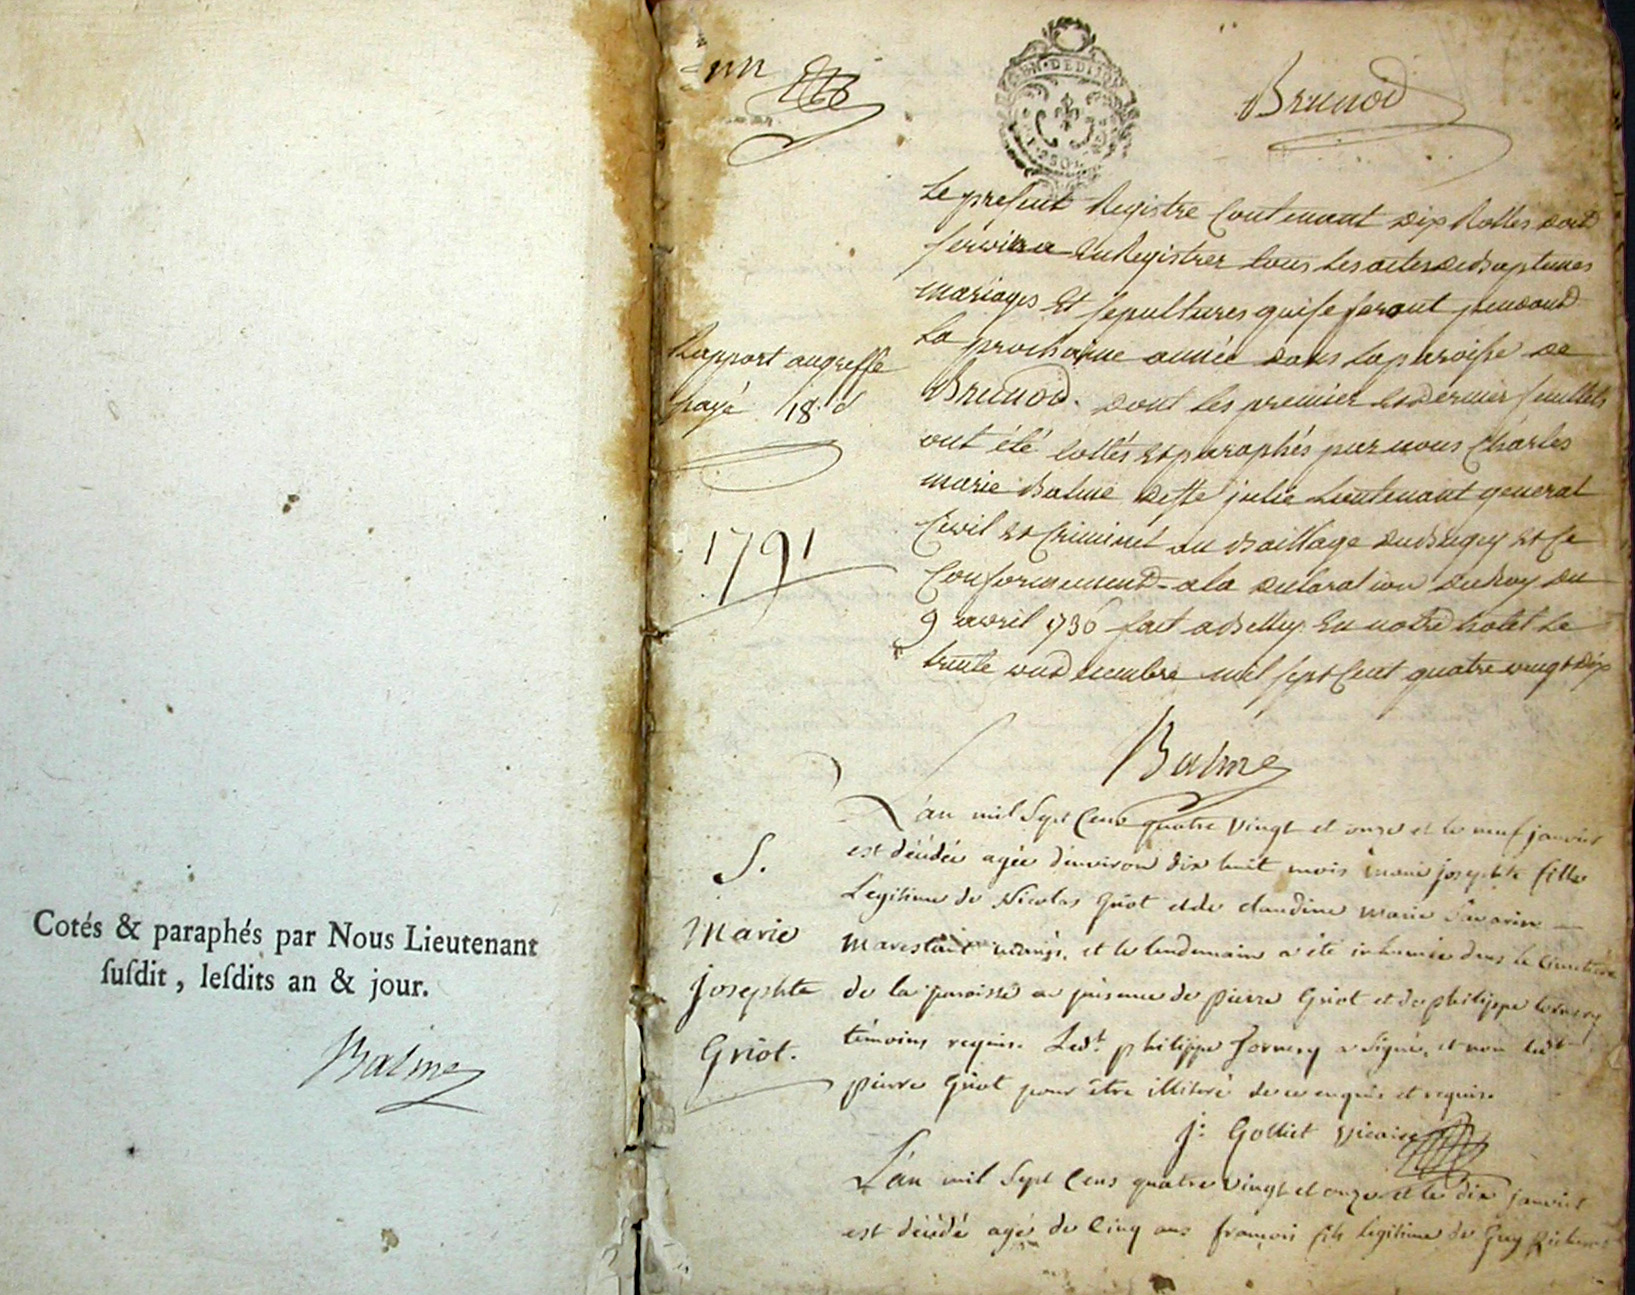 Cotés & paraphés par Nous Lieutenant
ſuſdit, leſdits an & jour.
Balme
un
Brenod
Le present Registre Contenant dix Rolles doit
servir a enRegistrer tous les actes de Baptemes
mariages et sepultures qui se feront pendant
La prochaine année dans la paroisse de
Brenod. dont les premier et dernier feuillets
ont été cottés et paraphés par nous Charles
marie Balme julie Lieutenant general
Civil et Criminel au Baillage du Bugey et Ce
Conformement a la declaration du Roy du
9 avril 1736 fait a Belley En notre hotel Le
trente un decembre mil sept Cent quatre vingt dix
Balme
Rapport au greffe
payé 18
1791
S.
Marie
Josephte
Griot.
L'an mil Sept Cens quatre Vingt et onze et le neuf janvier
est décédée agée d'environ dix huit mois marie josephte fille
Legitime de Nicolas Griot et de claudine marie Savarin
et le lendemain a été inhumée dans le Cimetière
de la paroisse en présence de pierre Griot et de philippe
témoins requis. Ledt. philippe a signé, et non ledt
pierre Griot pour être illiteré de ce enquis et requis.
J: Golliet Vicaire
L'an mil Sept Cens quatre Vingt et onze et le dix janvier
est décédé agé de Cinq ans françois fils Legitime de Guy